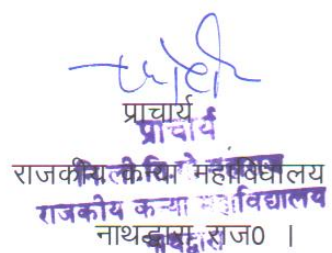 प्राचार्य
प्राचार्य
राजकीय कन्या महाविद्यालय
राजकीय कन्या महाविद्यालय
नाथद्वारा, राज0 ।
नाथद्वारा